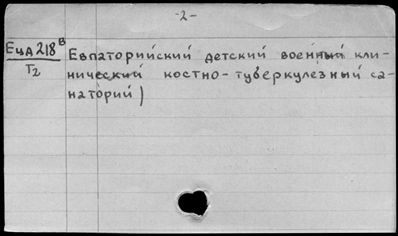 -2-
ЕцА218в Евпаторийский детский военный кли-
Т2 нический костно-туберкулезный са-
наторий)